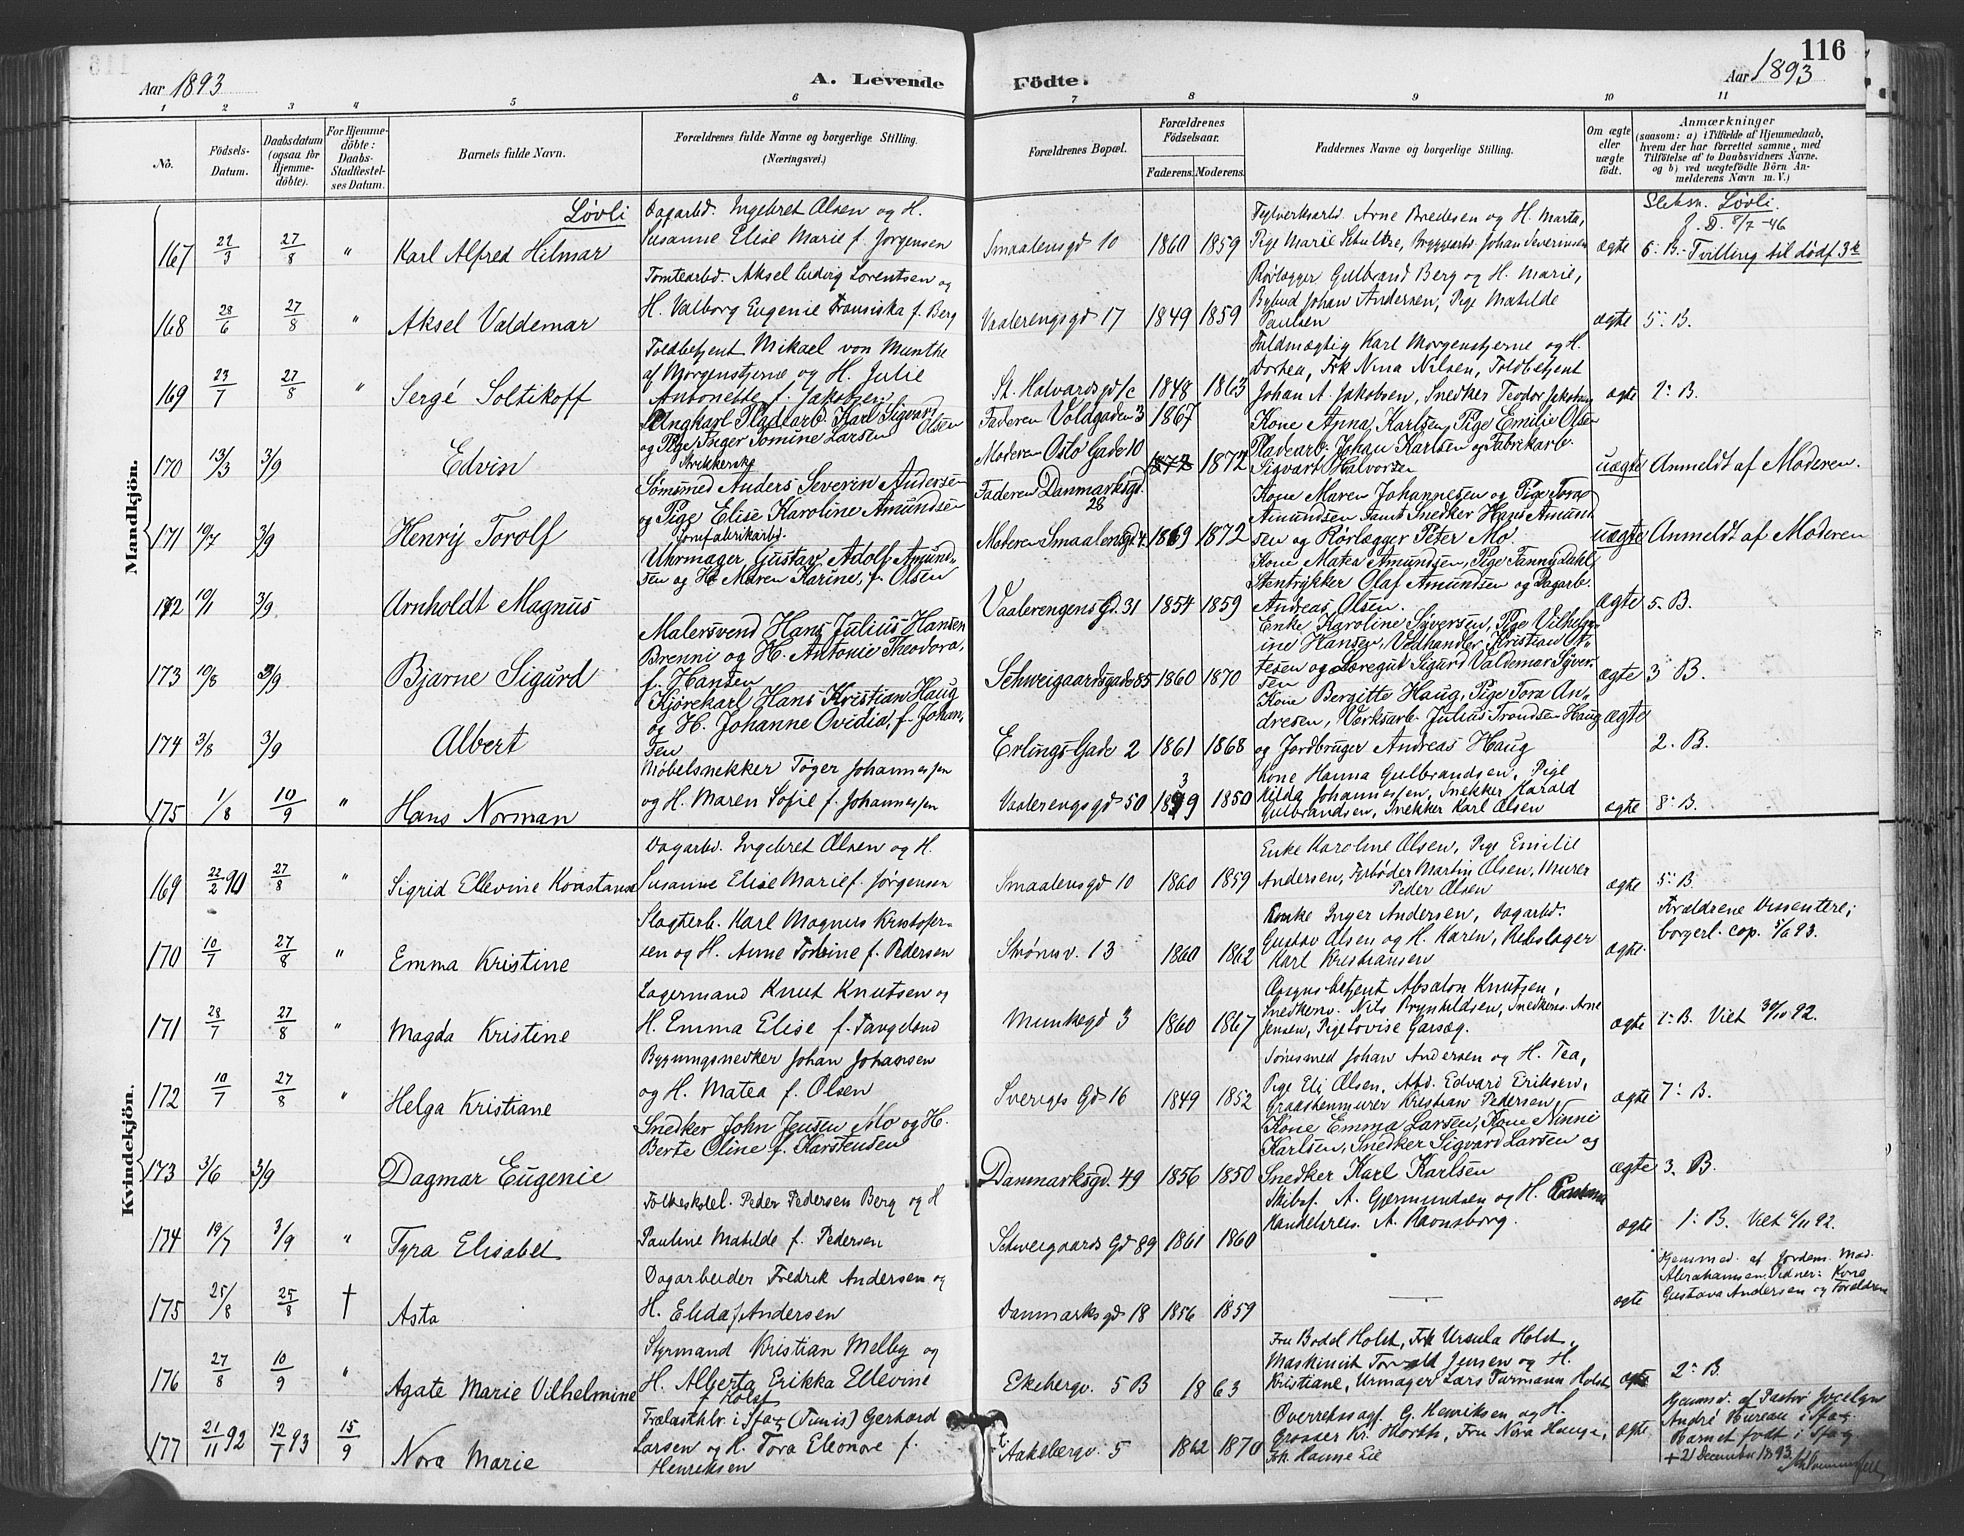 116
Aar 1893
A. Levende
Födte.
Aar 1893
1 2 3 " 5 6 7 8 9 10 11
No.
Födsels-Datum.
Daabsdatum (ogsaa for Hjemmedöbte).
For Hjemmedöbte: Daabs-Stadfestelses Datum.
Barnets fulde Navn.
Forældrenes fulde Navne og borgerlige Stilling. (Næringsvei.)
Forældrenes Bopæl.
Forældrenes Födselsaar.
Faderens. Moderens.
Faddernes Navne og borgerlige Stilling.
Om ægte eller uægte födt.
Anmærkninger
(saasom: a) i Tilfælde af Hjemmedaab, hvem der har forrettet samme, med Tilföielse af to Daabsvidners Navne. og b) ved uægtefödte Börn Anmelderens Navn m. V.)
Mandkjön.
Løvli
Dagarbd. Ingebret Olsen og H.
Susanne Elise Marie f. Jorgensen
167 22/3 27/8 " Karl Alfred Hilmar
Smaalensgd 10 1860 1859
Arne Bredesen og H. Marta,
Pige Marie Schulke, Johan Severinsen
ægte
Løvli.
8/7-46
6. B. Tvilling til dødf. 3k
168 28/6 27/8 " Aksel Valdemar
Tomtearbd. Aksel Ludvig Lorentsen og
H. Valborg Eugenie Fransiska f. Berg
Vaalerengsgd 17 1849 1859
Rørlægger Gulbrand Berg og H. Marie,
Bybud Johan Andersen, Pige Matilde
Paulsen
ægte 5. B.
169 23/7 27/8 " Sergé Soltikoff
Toldbetjent Mikael von Munthe
af Morgenstjerne og H. Julie
Antonette f. Jakobsen
St. Halvardsgd 1/c 1848 1863
Fuldmægtig Karl Morgenstjerne og H.
Dorhea, Frk Nina Nilsen, Toldbetjent
Johan A. Jakobsen, Snedker Teodor Jakobsen
ægte 1. B.
170 13/3 3/9 Edvin
Ungkarl Pladearb. Karl Sigvart Olsen
og Pige Inger Tomine Larsen
Faderen Voldgaden 3 1867
Moderen Oslo Gade 10 1872 1872
Kone Anna Karlsen, Pige Emilie Olsen
Pladearb. Johan Karlsen og Fabrikarb.
Sigvart Halvorsen
uægte Anmeldt af Moderen.
171 19/7 3/9 Henry Torolf
Sømsmed Anders Severin Andersen
og Pige Elise Karoline Amundsen
Faderen Danmarksgd. 28
Moderen Smaalensgd 4 1869 1872
Kone Maren Johannesen og Pige Tora
Amundsen samt Snedker Hans Amund
sen og Rørlægger Peter Mo.
uægte Anmeldt af Moderen
172 19/1 3/9 Arnholdt Magnus
Uhrmager Gustav Adolf Amund-
sen og H. Maren Karine, f. Olsen
Vaalerengens G. 31 1854 1859
Kone Matea Amundsen, Pige Fanny Dahl
Stentrykker Olaf Amundsen og Dagarb.
Andreas Olsen.
ægte 5. B.
173 19/8 3/9 Bjarne Sigurd
Malersvend Hans Julius Hansen
Brenni og H. Antonie Theodora,
f. Hansen
Schweigaardsgade 85 1860 1870
Enke Karoline Syversen, Pige Vilhelm-
ine Hansen, Vedhandler Kristian Ot-
tesen og Løregut Sigurd Valdemar Syver-
sen
ægte 3 B.
174 3/8 3/9 Albert
Kjørekarl Hans Kristian Haug
og H. Johanne Ovidia, f. Johan-
sen
Erlings Gade 2 1861 1868
Kone Bergitte Haug, Pige Tora An-
dresen, Verksarb. Julius Trondsen Haug
og Jordbruger Andreas Haug
ægte 2. B.
175 1/8 10/9 " Hans Norman
Møbelsnekker Töger Johannessen
og H. Maren Sofie f. Johannessen
Vaalerengsgd 50 1849 1850
Kone Hanna Gulbrandsen, Pige
Hilda Johannessen, Snekker Harald
Gulbrandsen, Snekker Karl Olsen
ægte 8. B.
Kvindekjön.
169 22/2 90 27/8 " Sigrid Ellevine Konstanse
Dagarbd. Ingebret Olsen og H.
Susanne Elise Marie f. Jørgensen
Smaalensgd 10 1860 1859
Enke Karoline Olsen, Pige Emilie
Andersen, Fyrbøder Martin Olsen, Murer
Peder Olsen
ægte 5. B.
170 10/7 27/8 " Emma Kristine
Slagterb. Karl Magnus Kristofer-
sen og H. Anne Tomine f. Pedersen
Strømsv. 13 1860 1862
Enke Inger Andersen, Dagarbd.
Gustav Olsen og H. Karen, Rebslager
Karl Kristiansen
ægte
Forældrene Dissentere;
borgerl. cop. 93.
171 28/7 27/8 " Magda Kristine
Lagermand Knut Knutsen og
H. Emma Elise f. Tangeland
Munkegd 3 1860 1867
betjent Absalon Knutsen,
Snedkersv. Nils Brynhildsen, Snedkersv. Arne
Jensen, Pige Lovise Garsæg.
ægte 1. B. Viet 30/10 92.
172 10/7 27/8 " Helga Kristiane
Bygningsnedker Johan Johansen
og H. Matea f. Olsen
Sveriges Gd 16 1849 1852
Sømsmed Johan Andersen og H. Tea,
Pige Eli Olsen, Abd. Edvard Eriksen,
Graastenmurer Kristian Pedersen
ægte 7. B.
173 3/6 3/9 Dagmar Eugenie
Snedker John Jensen Mo og H.
Berte Oline f. Karstensen
Danmarksgd. 49 1856 1850
Kone Emma Larsen, Kone Ninni
Karlsen, Snedker Sigvard Larsen og
Snedker Karl Karlsen
ægte 3. B.
174 19/7 3/9 " Tyra Elisabet
Folkeskolel. Peder Pedersen Berg og H
Pauline Matilde f. Pedersen
Schweigaards Gd 89 1861 1860
Skibsf. A. Gjermundsen og H.
Handelsreis. A. Ravnsborg.
ægte 1. B. Viet 92.
175 25/8 25/8 † Asta
Dagarbeider Fredrik Andersen og
H. Elida f. Andersen
Danmarksgd 18 1856 1859
ægte
Hjemmed. af Jordem. Mad.
Abrahamsen, Vidner: Kone
Gustava Andersen og Forældrene
176 27/8 10/9 " Agate Marie Vilhelmine
Styrmand Kristian Melby og
H. Alberta Erikka Ellevine
f. Holst
Ekebergv. 5 B 1863
Fru Bodel Holst, Frk Ursula Holst,
Maskinist Torvald Jensen og H.
Kristiane, Urmager Lars Turmann Holst
ægte 2. B.
177 21/11 92 12/7 93 15/9 Nora Marie
Trælasthlr. i Sfax (Tunis) Gerhard
Larsen og H. Tora Eleonore f.
Henriksen
Aakebergv. 5 1862 1870
Overretssagf. G. Henriksen og H.
Grosser Kr. Horth, Fru Nora Hauge,
Frk. Hanne Lie
ægte
Hjemmd. af Pastor Jocelyn
André Bureau i Sfax.
Barnet født i Sfax.
+ 21 December 1893.